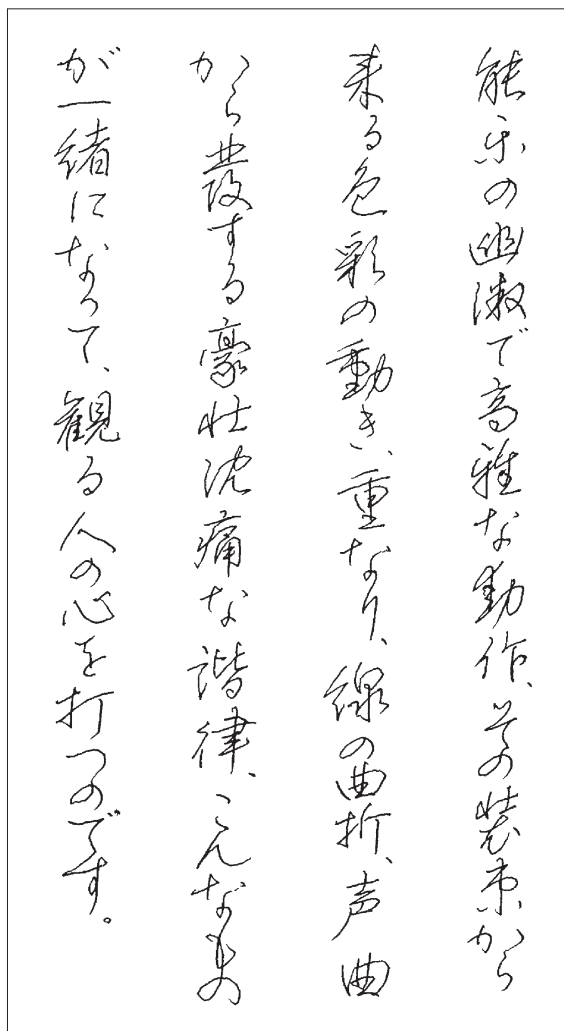 能楽の幽微で高雅な動作、その装束から
来る色彩の動き、重なり、線の曲折、声曲
から発する豪壮沈痛な諧律、こんなもの
が一緒になって、観る人の心を打つのです。